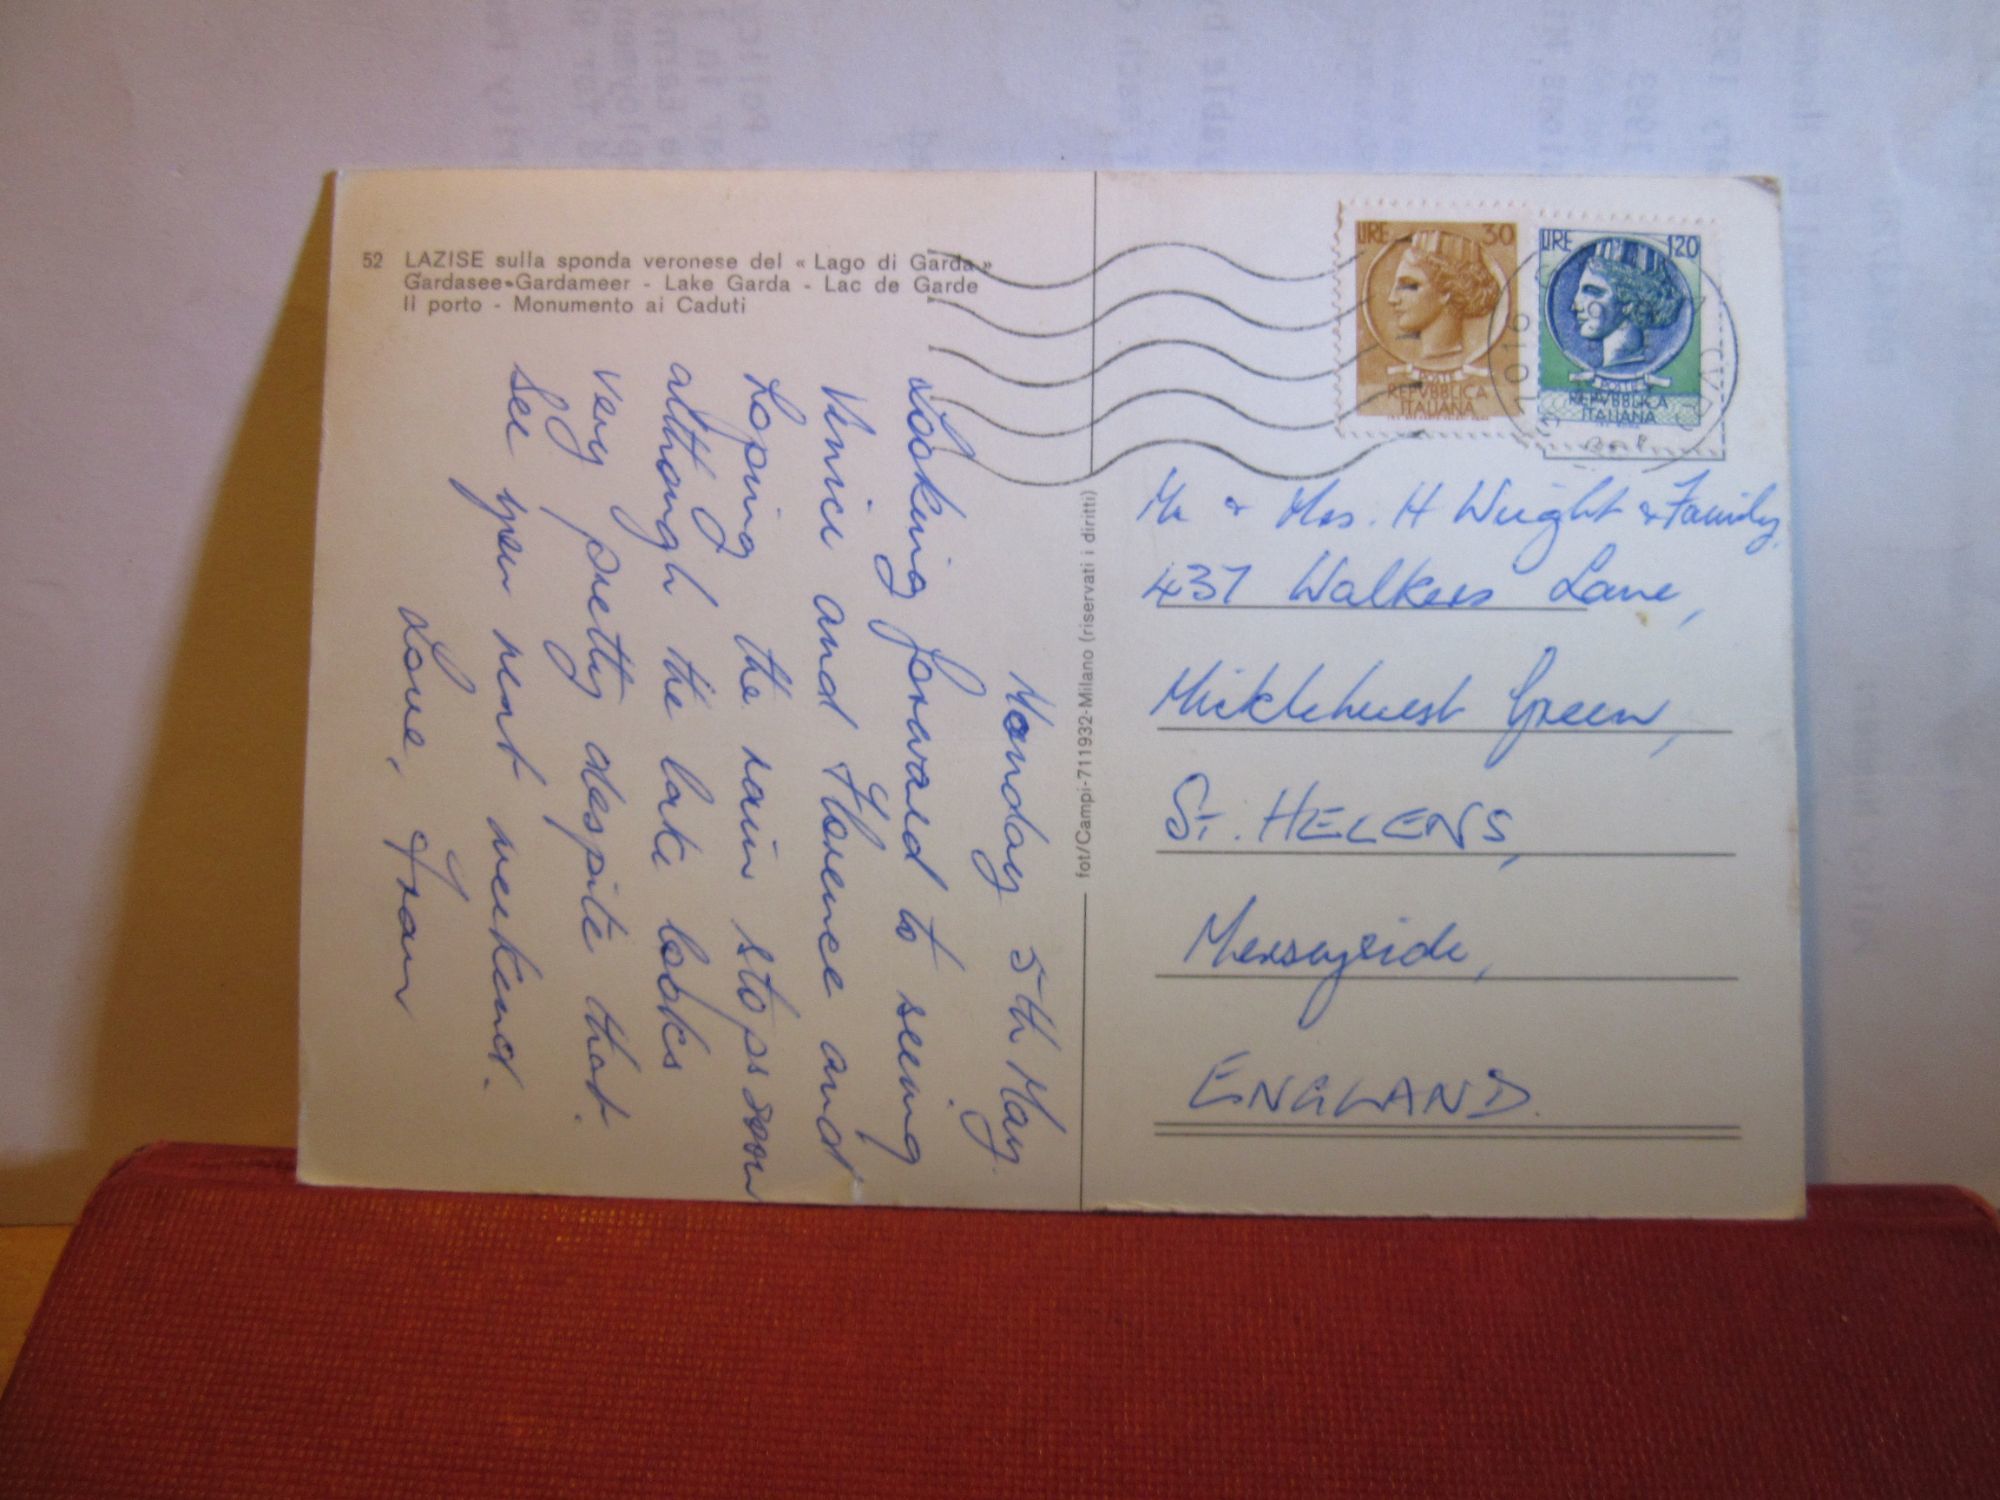 52 LAZISE sulla sponda veronese del « Lago di Garda »
Gardasee-Gardameer - Lake Garda - Lac de Garde
Il porto - Monumento ai Caduti
Monday 5th May.
Looking forward to seeing
Venice and Florence and
hoping the rain stops soon
although the lake looks
very pretty despite that.
See you next weekend.
Love, Fran
fot/Campi-711932-Milano (riservati i diritti)
LIRE 30
POSTE
REPVBBLICA
ITALIANA
LIRE 120
POSTE
REPVBBLICA
ITALIANA
Mr & Mrs. H Wright & Family,
437 Walkers Lane,
Micklehurst Green,
ST. HELENS,
Merseyside,
ENGLAND.